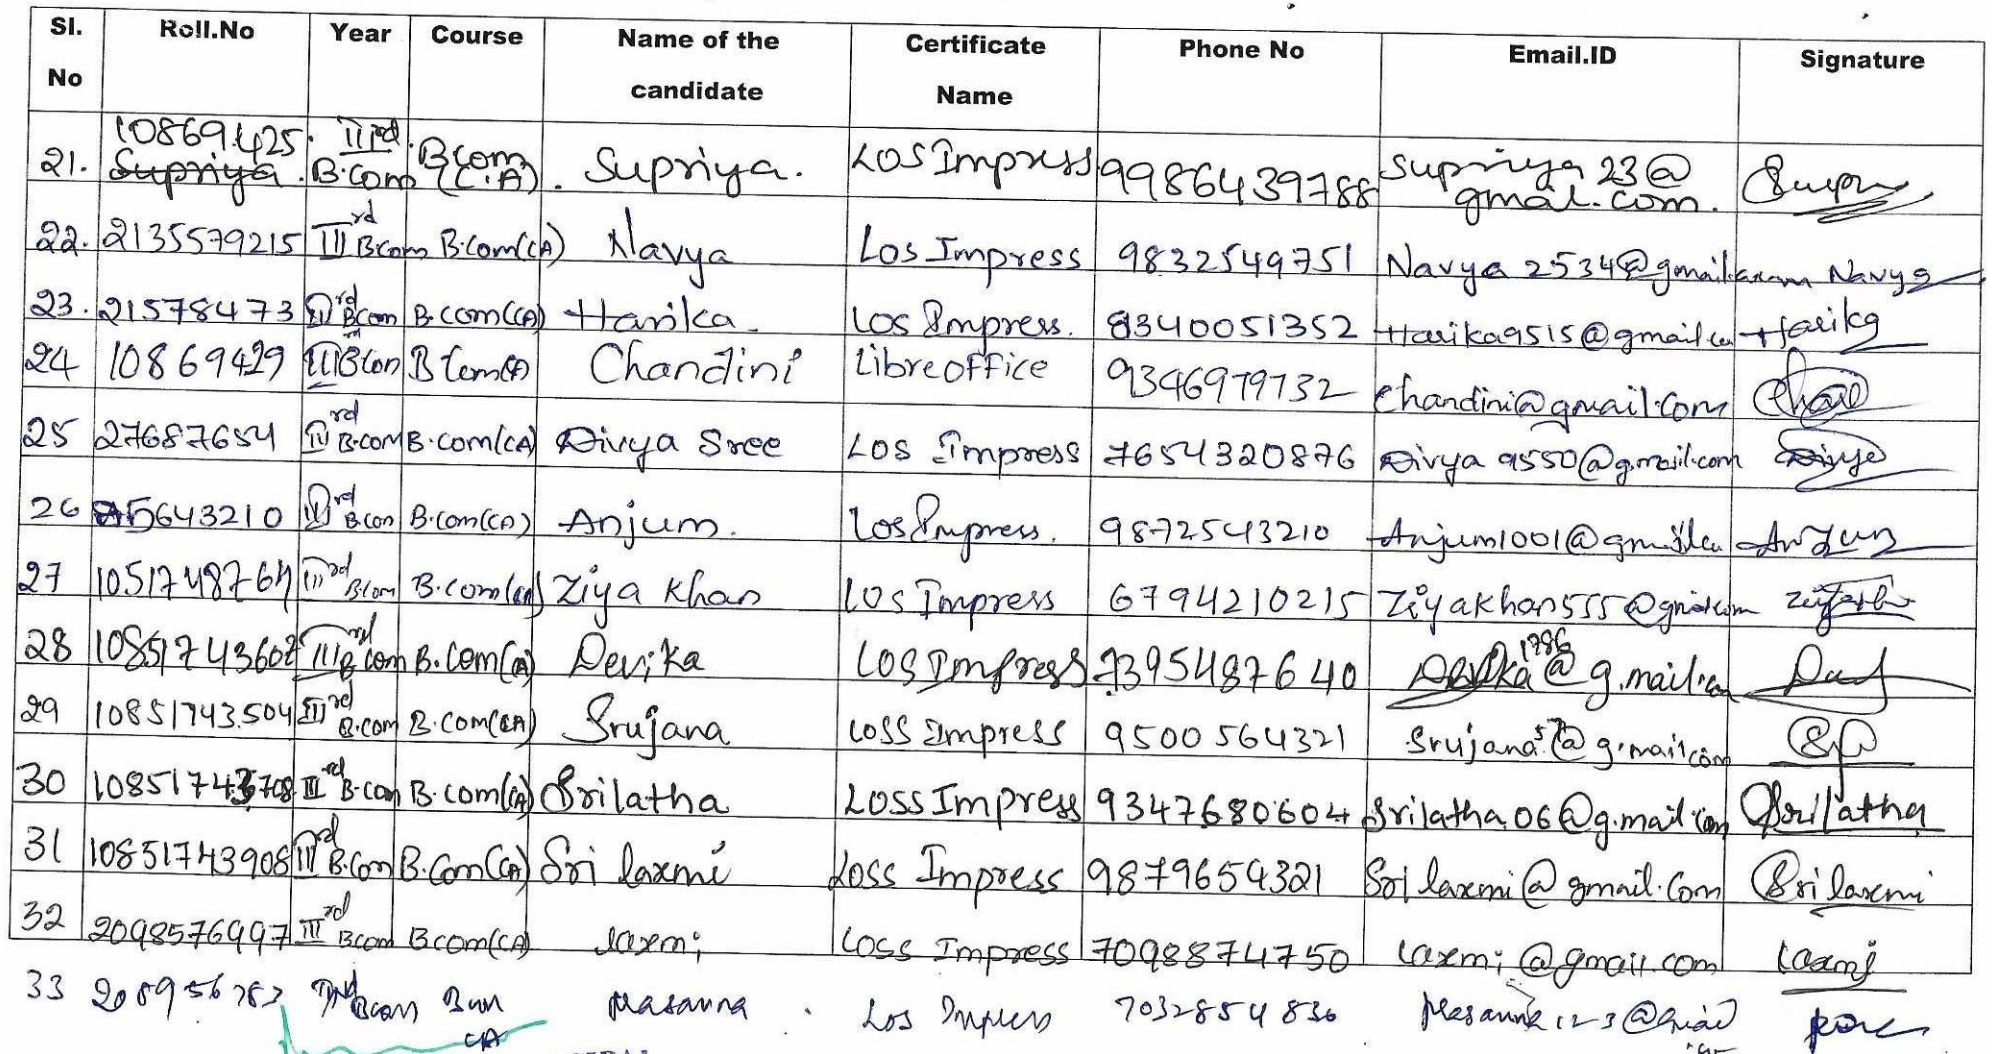 Sl. No Roll.No Year Course Name of the candidate Certificate Name Phone No Email.ID Signature
21. 10869425. Supriya. IIIrd. B.Com B.com (C.A). Supriya. LOS Impress 9986439788 Supriya 23@ gmal.com.
22. 2135579215 IIIrd B.com B.Com(CA) Navya Los Impress 9832549751 Navya 2534@gmail.com Navya
23. 21578473 IIIrd B.com B.com(CA) Harika. Los Impress. 8340051352 Harika9515@gmail.co Harika
24 10869429 III B.Con B Com(A) Chandini Libreoffice 9346979732 Chandini@gmail.com
25 27687654 IIIrd B.com B.com(CA) Divya Sree Los Impress 7654320876 Divya 9550@g.mail.com Divya
26 5643210 IIIrd B.con B.com(CA) Anjum. Los Impress. 9872543210 Anjum1001@gmail.co Anjum
27 1051748764 IIIrd B.com B.com(CA) Ziya Khan Los Impress 6794210215 Ziyakhan555@gmail.com
28 10851743607 IIIrd B.com B.com(CA) Devika LOS Impress 7395487640 Devika1786@g.mail.com
29 10851743504 IIIrd B.com B.com(CA) Srujana Loss Impress 9500564321 Srujana57@g.mail.com
30 10851743708 IIIrd B.com B.com(CA) Srilatha Loss Impress 9347680604 Srilatha.06@g.mail.com Srilatha
31 10851743908 IIIrd B.Com B.Com(CA) Sri laxmi Loss Impress 9879654321 Sri laxmi@gmail.com Sri laxmi
32 2098576997 IIIrd Bcom Bcom(CA) laxmi Loss Impress 7098874750 laxmi@gmail.com Laxmi
33 208956783 Bcom CA Masanna. Los Impress 7032854836